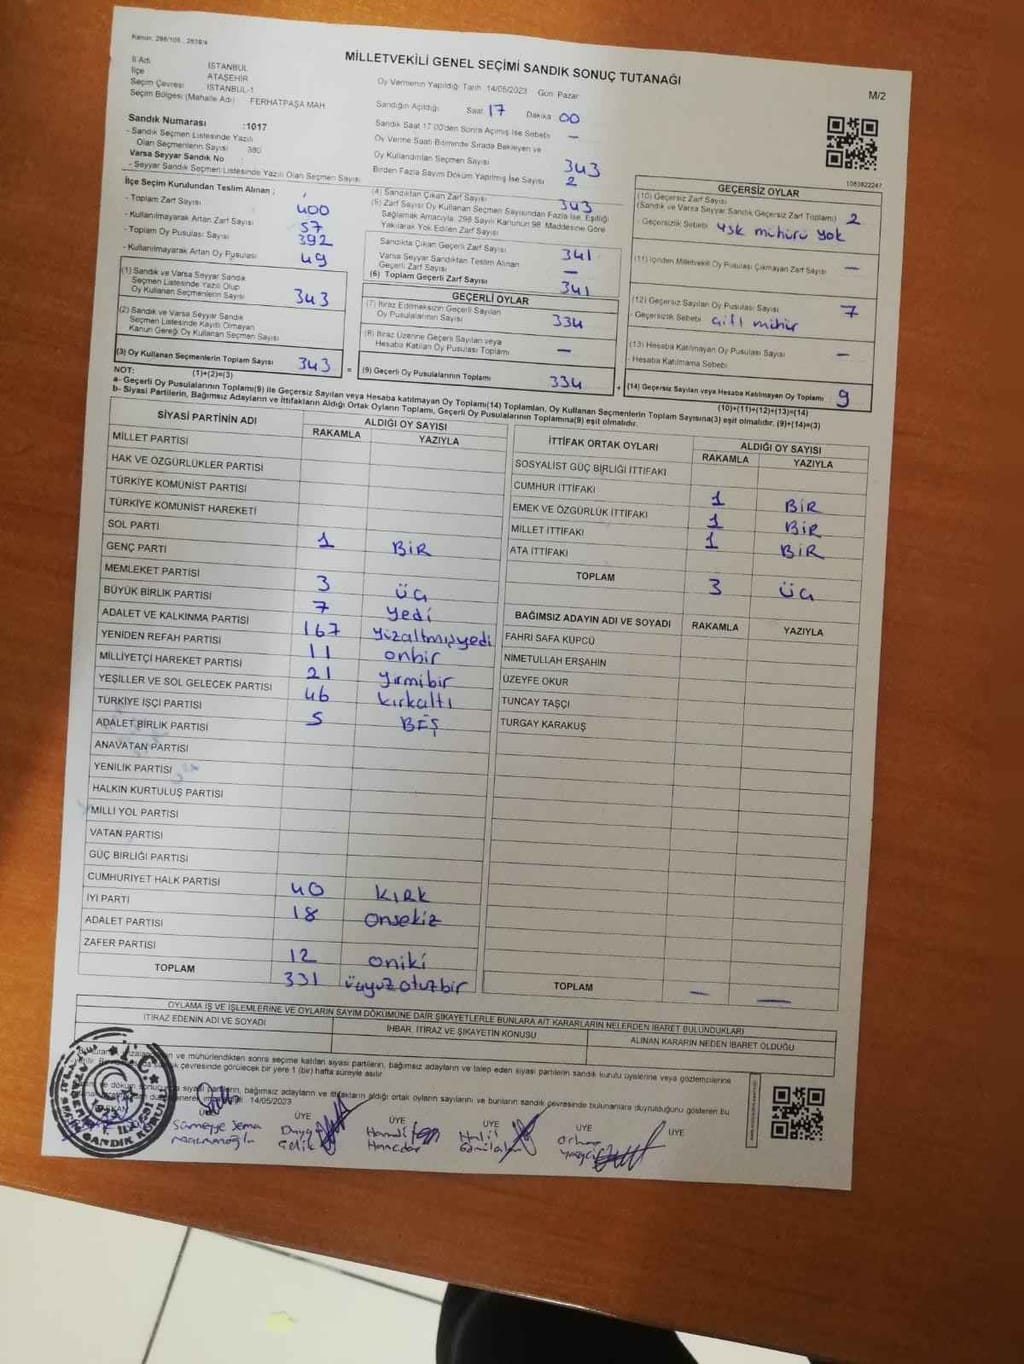 Kanun: 298/105 , 2839/4
MİLLETVEKİLİ GENEL SEÇİMİ SANDIK SONUÇ TUTANAĞI
M/2
İl Adı İSTANBUL
İlçe ATAŞEHİR
Seçim Çevresi İSTANBUL-1
Seçim Bölgesi (Mahalle Adı) FERHATPAŞA MAH
Oy Vermenin Yapıldığı Tarih 14/05/2023 Gün Pazar
Sandığın Açıldığı Saat 17 Dakika 00
Sandık Saat 17.00'den Sonra Açılmış İse Sebebi —
Oy Verme Saati Bitiminde Sırada Bekleyen ve
Oy Kullandırılan Seçmen Sayısı 343
Birden Fazla Sayım Döküm Yapılmış İse Sayısı 2
Sandık Numarası :1017
- Sandık Seçmen Listesinde Yazılı
Olan Seçmenlerin Sayısı 380
Varsa Seyyar Sandık No
- Seyyar Sandık Seçmen Listesinde Yazılı Olan Seçmen Sayısı
1083822247
İlçe Seçim Kurulundan Teslim Alınan ;
- Toplam Zarf Sayısı 400
- Kullanılmayarak Artan Zarf Sayısı 57
- Toplam Oy Pusulası Sayısı 392
- Kullanılmayarak Artan Oy Pusulası 49
(1) Sandık ve Varsa Seyyar Sandık
Seçmen Listesinde Yazılı Olup
Oy Kullanan Seçmenlerin Sayısı 343
(2) Sandık ve Varsa Seyyar Sandık
Seçmen Listesinde Kayıtlı Olmayan
Kanun Gereği Oy Kullanan Seçmen Sayısı
(3) Oy Kullanan Seçmenlerin Toplam Sayısı 343
(1)+(2)=(3)
(4) Sandıktan Çıkan Zarf Sayısı 343
(5) Zarf Sayısı Oy Kullanan Seçmen Sayısından Fazla İse, Eşitliği
Sağlamak Amacıyla, 298 Sayılı Kanunun 98. Maddesine Göre
Yakılarak Yok Edilen Zarf Sayısı
Sandıkta Çıkan Geçerli Zarf Sayısı 341
Varsa Seyyar Sandıktan Teslim Alınan
Geçerli Zarf Sayısı —
(6) Toplam Geçerli Zarf Sayısı 341
GEÇERLİ OYLAR
(7) İtiraz Edilmeksizin Geçerli Sayılan
Oy Pusulalarının Sayısı 334
(8) İtiraz Üzerine Geçerli Sayılan veya
Hesaba Katılan Oy Pusulası Toplamı —
= (9) Geçerli Oy Pusulalarının Toplamı 334
GEÇERSİZ OYLAR
(10) Geçersiz Zarf Sayısı
(Sandık ve Varsa Seyyar Sandık Geçersiz Zarf Toplamı) 2
- Geçersizlik Sebebi ysk mühürü yok
(11) İçinden Milletvekili Oy Pusulası Çıkmayan Zarf Sayısı —
(12) Geçersiz Sayılan Oy Pusulası Sayısı 7
- Geçersizlik Sebebi Çift mühür
(13) Hesaba Katılmayan Oy Pusulası Sayısı —
- Hesaba Katılmama Sebebi
+ (14) Geçersiz Sayılan veya Hesaba Katılmayan Oy Toplamı 9
(10)+(11)+(12)+(13)=(14)
NOT:
a- Geçerli Oy Pusulalarının Toplamı(9) ile Geçersiz Sayılan veya Hesaba katılmayan Oy Toplamı(14) Toplamları, Oy Kullanan Seçmenlerin Toplam Sayısına(3) eşit olmalıdır. (9)+(14)=(3)
b- Siyasi Partilerin, Bağımsız Adayların ve İttifakların Aldığı Ortak Oyların Toplamı, Geçerli Oy Pusulalarının Toplamına(9) eşit olmalıdır.
SİYASİ PARTİNİN ADI ALDIĞI OY SAYISI
RAKAMLA YAZIYLA
MİLLET PARTİSİ
HAK VE ÖZGÜRLÜKLER PARTİSİ
TÜRKİYE KOMÜNİST PARTİSİ
TÜRKİYE KOMÜNİST HAREKETİ
SOL PARTİ
GENÇ PARTİ 1 BİR
MEMLEKET PARTİSİ 3 üç
BÜYÜK BİRLİK PARTİSİ 7 yedi
ADALET VE KALKINMA PARTİSİ 167 yüzaltmışyedi
YENİDEN REFAH PARTİSİ 11 onbir
MİLLİYETÇİ HAREKET PARTİSİ 21 yirmibir
YEŞİLLER VE SOL GELECEK PARTİSİ 46 kırkaltı
TÜRKİYE İŞÇİ PARTİSİ 5 BEŞ
ADALET BİRLİK PARTİSİ
ANAVATAN PARTİSİ
YENİLİK PARTİSİ
HALKIN KURTULUŞ PARTİSİ
MİLLİ YOL PARTİSİ
VATAN PARTİSİ
GÜÇ BİRLİĞİ PARTİSİ
CUMHURİYET HALK PARTİSİ 40 KIRK
İYİ PARTİ 18 onsekiz
ADALET PARTİSİ
ZAFER PARTİSİ 12 oniki
TOPLAM 331 üçyüzotuzbir
İTTİFAK ORTAK OYLARI ALDIĞI OY SAYISI
RAKAMLA YAZIYLA
SOSYALİST GÜÇ BİRLİĞİ İTTİFAKI
CUMHUR İTTİFAKI 1 BİR
EMEK VE ÖZGÜRLÜK İTTİFAKI 1 BİR
MİLLET İTTİFAKI 1 BİR
ATA İTTİFAKI
TOPLAM 3 üç
BAĞIMSIZ ADAYIN ADI VE SOYADI RAKAMLA YAZIYLA
FAHRİ SAFA KÜPCÜ
NİMETULLAH ERŞAHİN
ÜZEYFE OKUR
TUNCAY TAŞÇI
TURGAY KARAKUŞ
TOPLAM — —
OYLAMA İŞ VE İŞLEMLERİNE VE OYLARIN SAYIM DÖKÜMÜNE DAİR ŞİKAYETLERLE BUNLARA AİT KARARLARIN NELERDEN İBARET BULUNDUKLARI
İTİRAZ EDENİN ADI VE SOYADI İHBAR, İTİRAZ VE ŞİKAYETİN KONUSU ALINAN KARARIN NEDEN İBARET OLDUĞU
ve mühürlendikten sonra seçime katılan siyasi partilerin, bağımsız adayların ve talep eden siyasi partilerin sandık kurulu üyelerine veya gözlemcilerine
çevresinde görülecek bir yere 1 (bir) hafta süreyle asılır.
siyasi partilerin, bağımsız adayların ve ittifakların aldığı ortak oyların sayılarını ve bunların sandık çevresinde bulunanlara duyurulduğunu gösteren bu
14/05/2023
BAŞKAN ÜYE ÜYE ÜYE ÜYE ÜYE
Sümeyye Sema
Duygu Çelik
Hamdi
Halil
Orhan
SANDIK KURULU